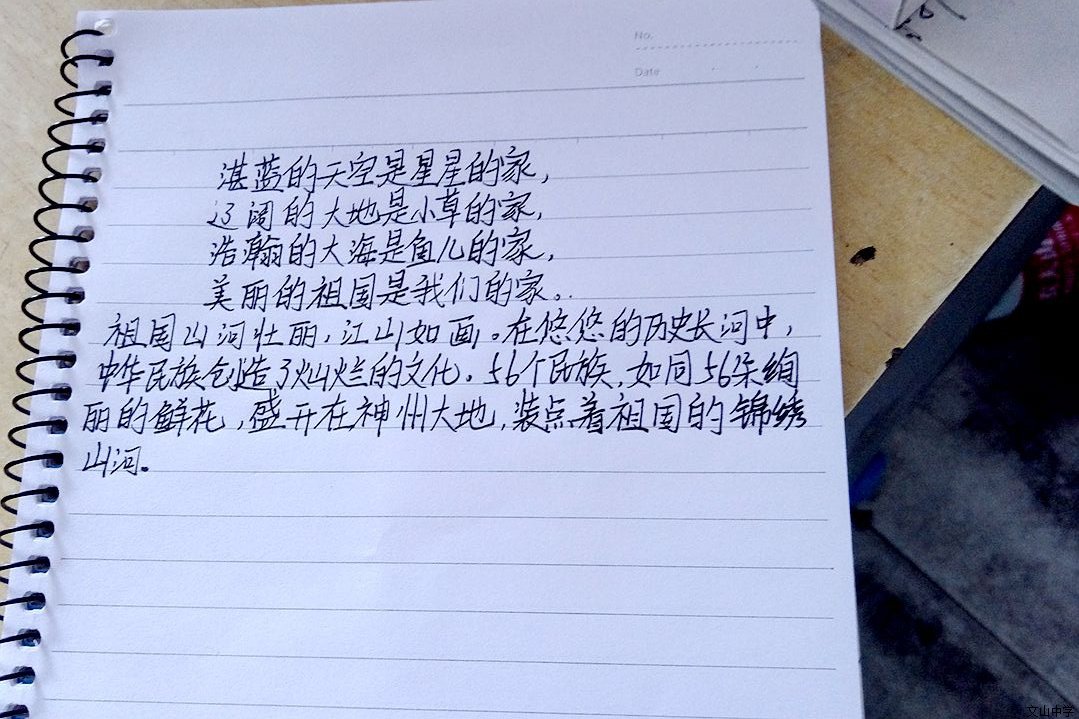 No.
Date
湛蓝的天空是星星的家，
辽阔的大地是小草的家，
浩瀚的大海是鱼儿的家，
美丽的祖国是我们的家。
祖国山河壮丽，江山如画。在悠悠的历史长河中，
中华民族创造了灿烂的文化。56个民族，如同56朵绚
丽的鲜花，盛开在神州大地，装点着祖国的锦绣
山河。
文山中学